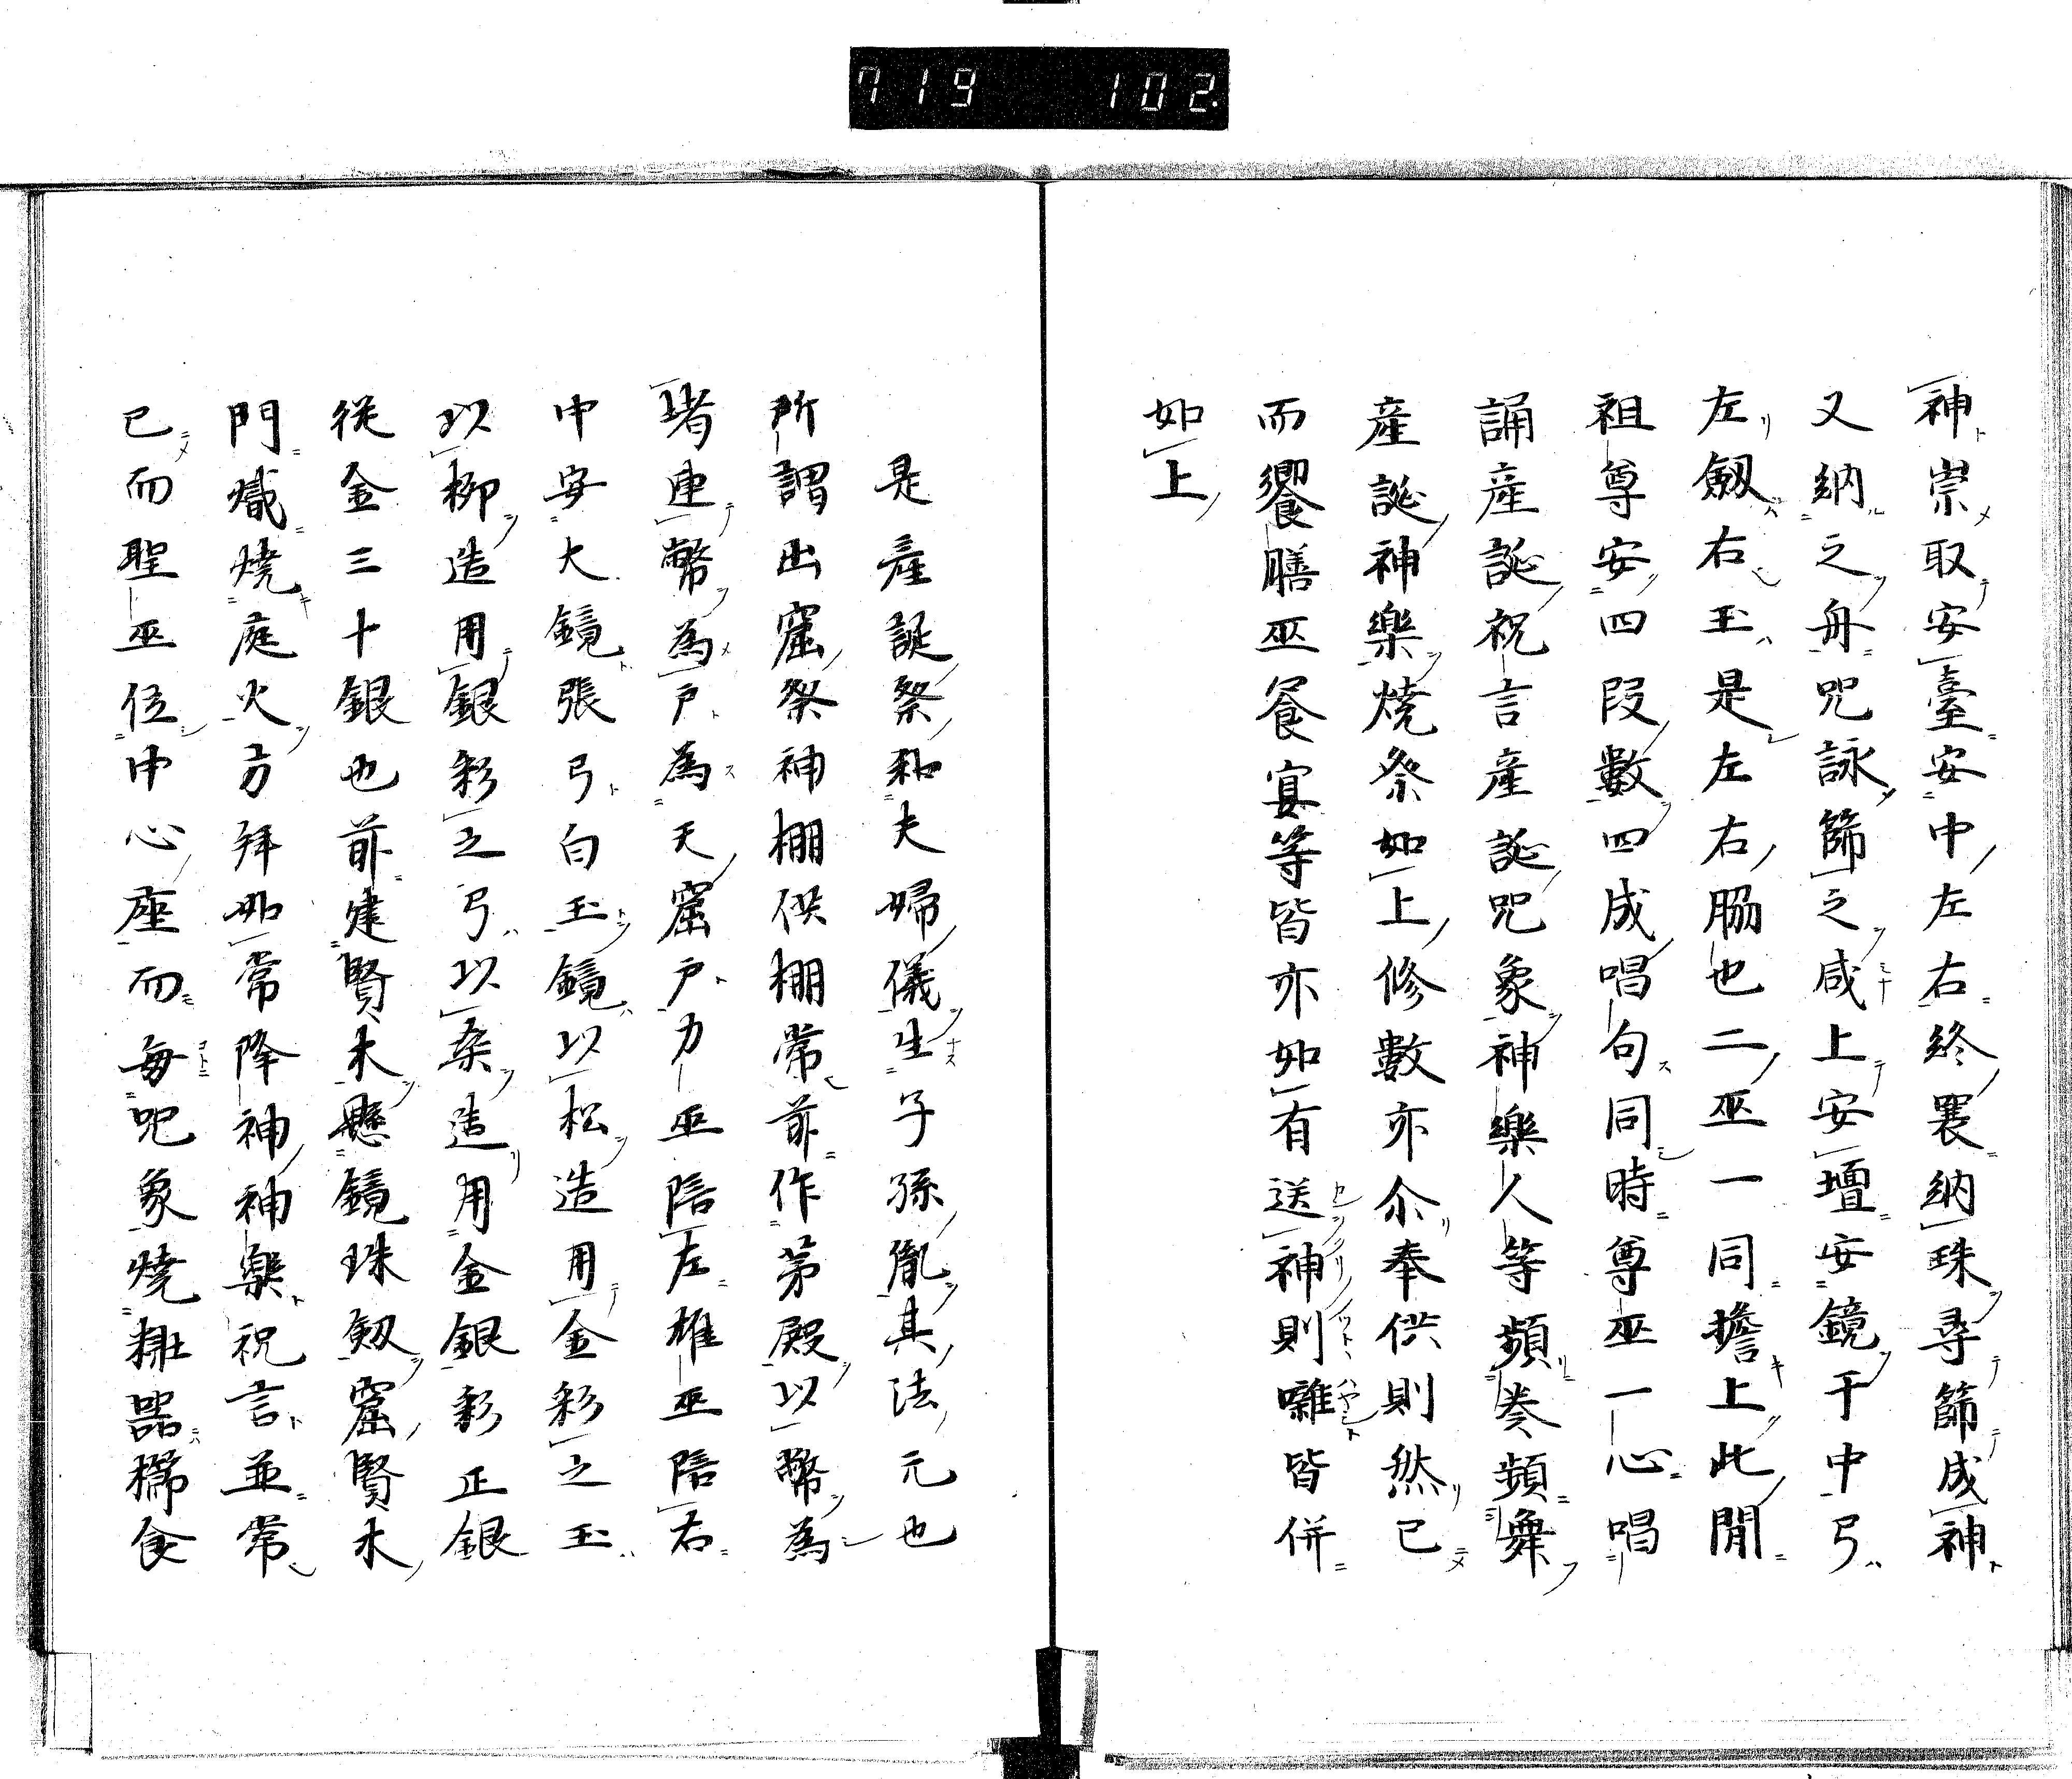 719 102.
神崇取安臺安中左右終襄納珠尋篩成神
又納之舟咒詠篩之咸上安壇安鏡于中弓
左劔右玉是左右脇也二巫一同擔上此閒
祖尊安四段數四成唱句同時尊巫一心唱
誦産誕祝言産誕咒象神樂人等頻奏頻舞
産誕神樂燒祭如上修數亦尒奉供則然已
而饗膳巫飡宴等皆亦如有送神則囃皆併
如上
是産誕祭和夫婦儀生子孫胤其法元也
所謂出窟祭神棚供棚常前作茅殿以幣為
堵連幣為戸為天窟戸力巫陪左椎巫陪右
中安大鏡張弓白玉鏡以松造用金彩之玉
以柳造用銀彩之弓以桑造用金銀彩正銀
從金三十銀也前建賢木懸鏡珠劔窟賢木
門熾燒庭火方拜如常降神神樂祝言並常
已而聖巫位中心座而每咒象燒粃器櫤食